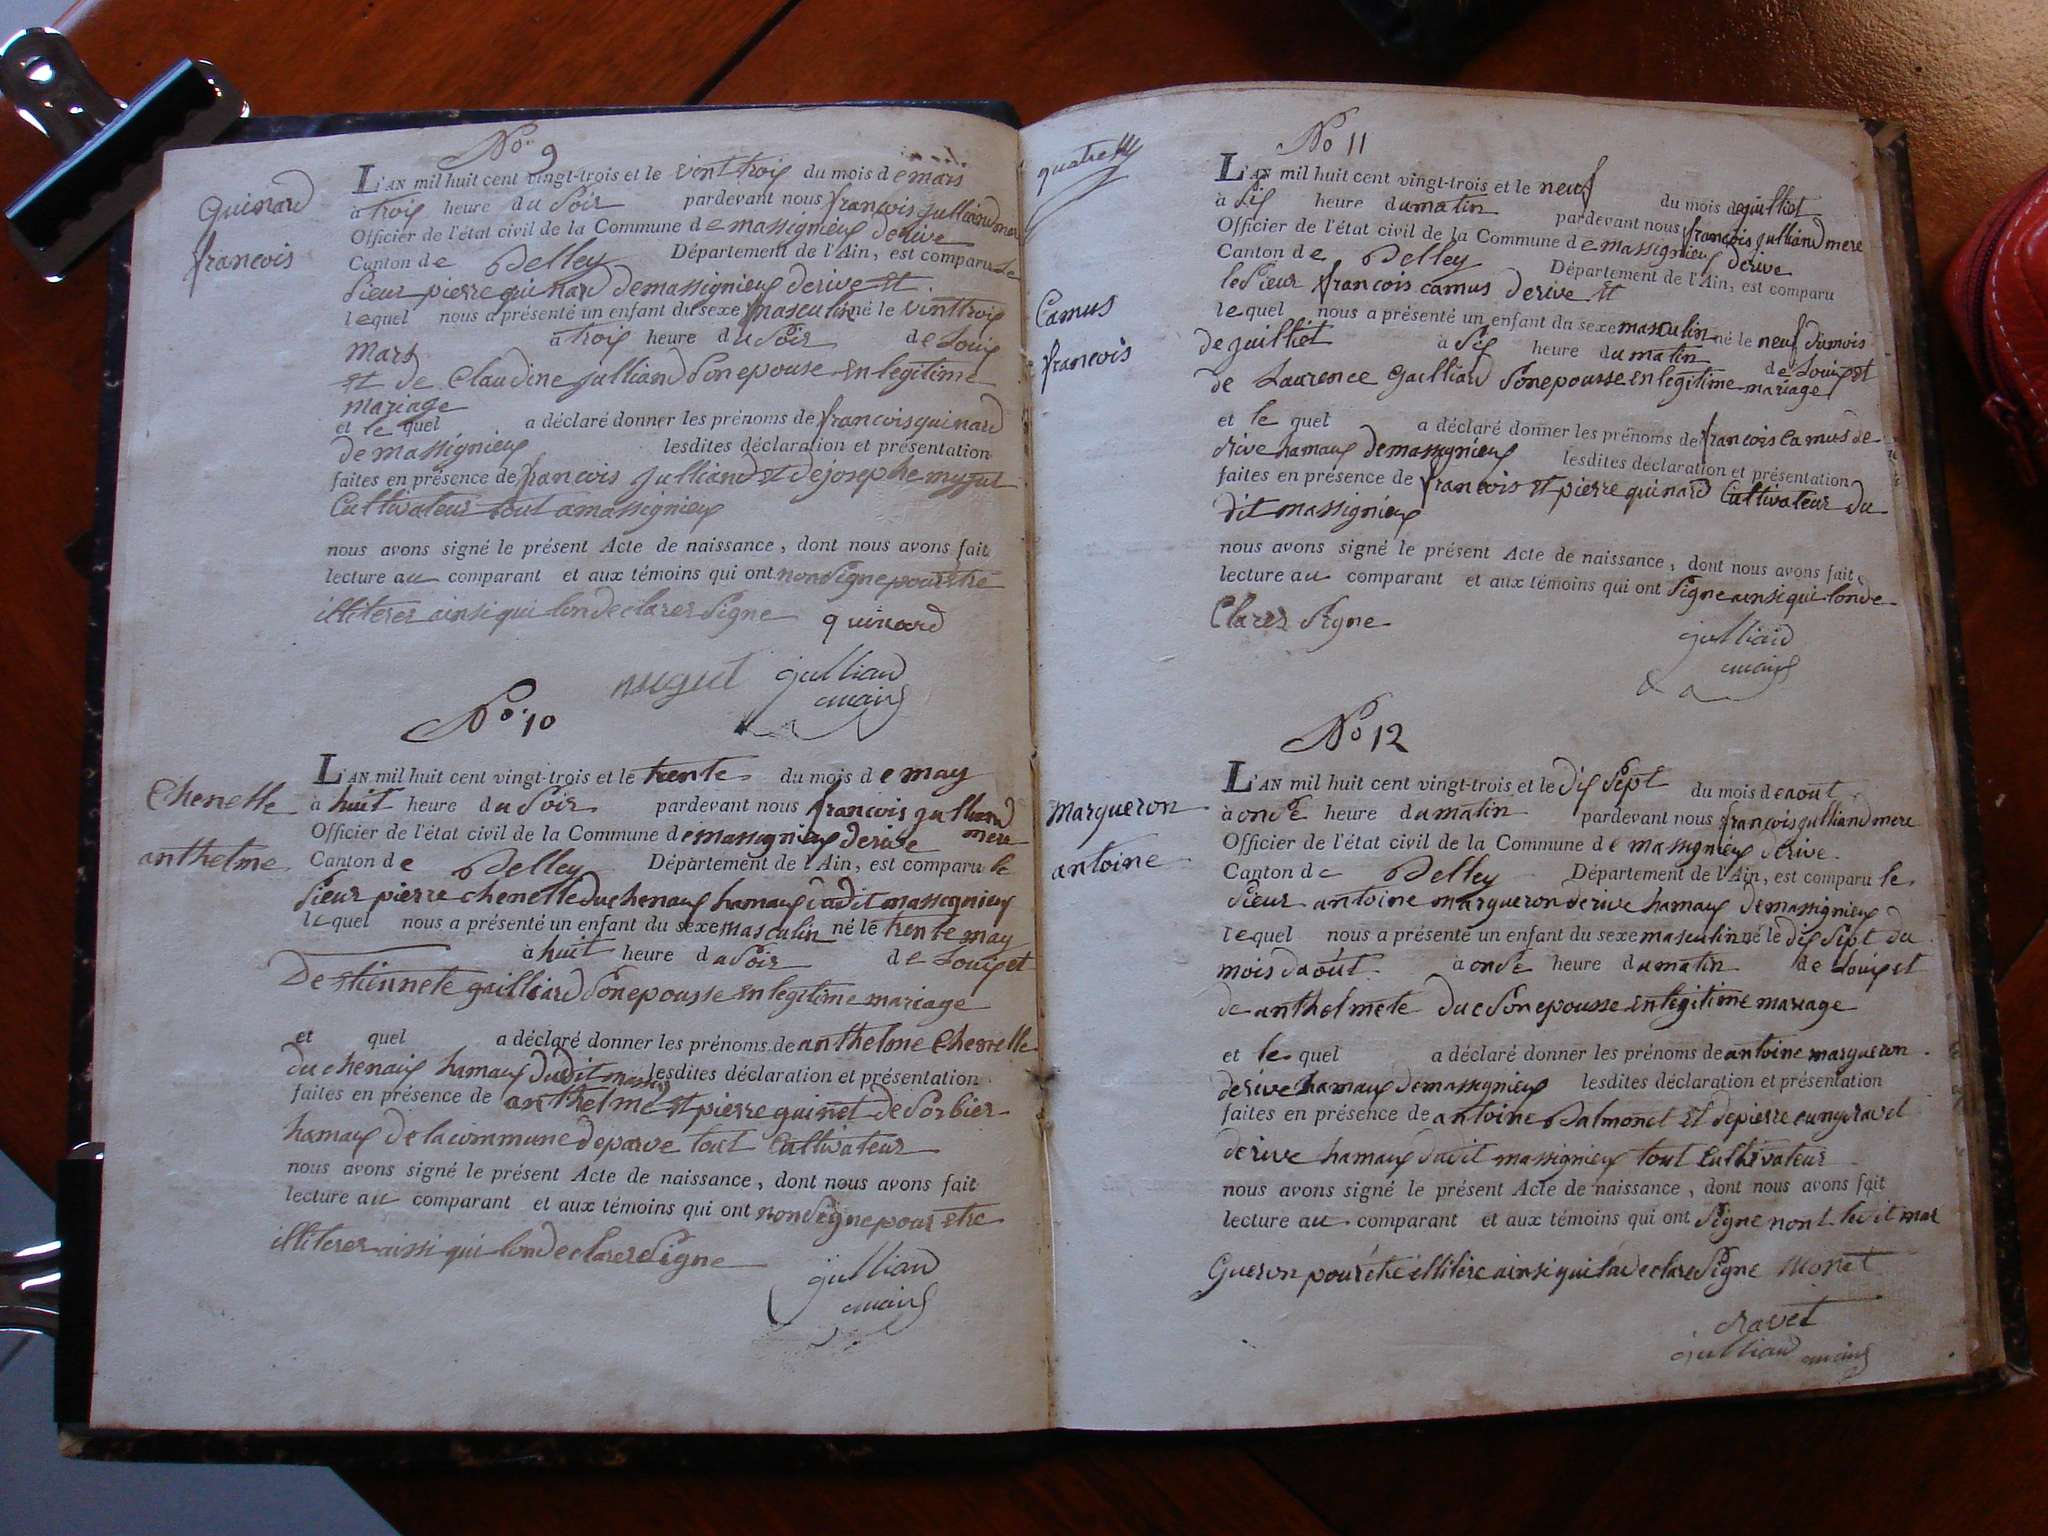 No. 9
Quinard
françois
L'AN mil huit cent vingt-trois et le vint trois du mois de mars
à trois heure du Soir pardevant nous françois julliand mere
Officier de l'état civil de la Commune de massignieux derive
Canton de Belley Département de l'Ain, est comparu le
Sieur pierre quinard demassignieux derive et
lequel nous a présenté un enfant du sexe masculin né le vint trois
Mars à trois heure du Soir de Louis
et de Claudine julliand Sonepouse en legitime
mariage
et le quel a déclaré donner les prénoms de françois quinard
de massignieux lesdites déclaration et présentation
faites en présence de françois julliand et de josephe
Cultivateur tout amassignieux
nous avons signé le présent Acte de naissance, dont nous avons fait
lecture au comparant et aux témoins qui ont non Signe pour etre
illiterer ainsi qui londeclarer Signe quinard
julliand
maire
No. 10
Chenelle
anthelme
L'AN mil huit cent vingt-trois et le trente du mois de may
à huit heure du Soir pardevant nous françois julliand
Officier de l'état civil de la Commune de massignieux derive mere
Canton de Belley Département de l'Ain, est comparu le
Sieur pierre chenelle duchenaux hamaux dudit massignieux
lequel nous a présenté un enfant du sexe masculin né le trente may
à huit heure du Soir de Louis et
De etiennete gailliard Sonepousse en legitime mariage
et quel a déclaré donner les prénoms de anthelme Chenelle
du chenaux hamaux dudit massig lesdites déclaration et présentation
faites en présence de anthelme et pierre guinet de Sorbier
hamaux de lacommune deparve tout Cultivateur
nous avons signé le présent Acte de naissance, dont nous avons fait
lecture au comparant et aux témoins qui ont non Signe pour etre
illiterer aissi qui londeclarer Signe
julliand
maire
No 11
Camus
françois
L'AN mil huit cent vingt-trois et le neuf du mois de juilliet
à Six heure du matin pardevant nous françois julliand mere
Officier de l'état civil de la Commune de massignieux derive
Canton de Belley Département de l'Ain, est comparu
le Sieur françois camus derive et
lequel nous a présenté un enfant du sexe masculin né le neuf dumois
de juilliet à Six heure du matin de Louis et
de Laurence gailliard Sonepousse en legitime mariage
et le quel a déclaré donner les prénoms de françois Camus de
rive hamaux demassignieux lesdites déclaration et présentation
faites en présence de françois et pierre quinard Cultivateur du
dit massignieux
nous avons signé le présent Acte de naissance, dont nous avons fait
lecture au comparant et aux témoins qui ont Signe ainsi qui londe
Clarer Signe
julliand
maire
No 12
Marqueron
antoine
L'AN mil huit cent vingt-trois et le dix Sept du mois de aout
à onde heure du matin pardevant nous françois julliand mere
Officier de l'état civil de la Commune de massignieux derive
Canton de Belley Département de l'Ain, est comparu le
Sieur antoine marqueron derive hamaux demassignieux
lequel nous a présenté un enfant du sexe masculin né le dix Sept du
mois daout à onde heure du matin de Louis et
de anthelmete duc Sonepousse en legitime mariage
et le quel a déclaré donner les prénoms de antoine marqueron
derive hamaux demassignieux lesdites déclaration et présentation
faites en présence de antoine Balmonet et depierre ravet
derive hamaux dudit massignieux tout Cultivateur
nous avons signé le présent Acte de naissance, dont nous avons fait
lecture au comparant et aux témoins qui ont Signe non ledit mar
Gueron pour être illitére ainsi qui la declare Signe Monet
Ravet
julliand maire